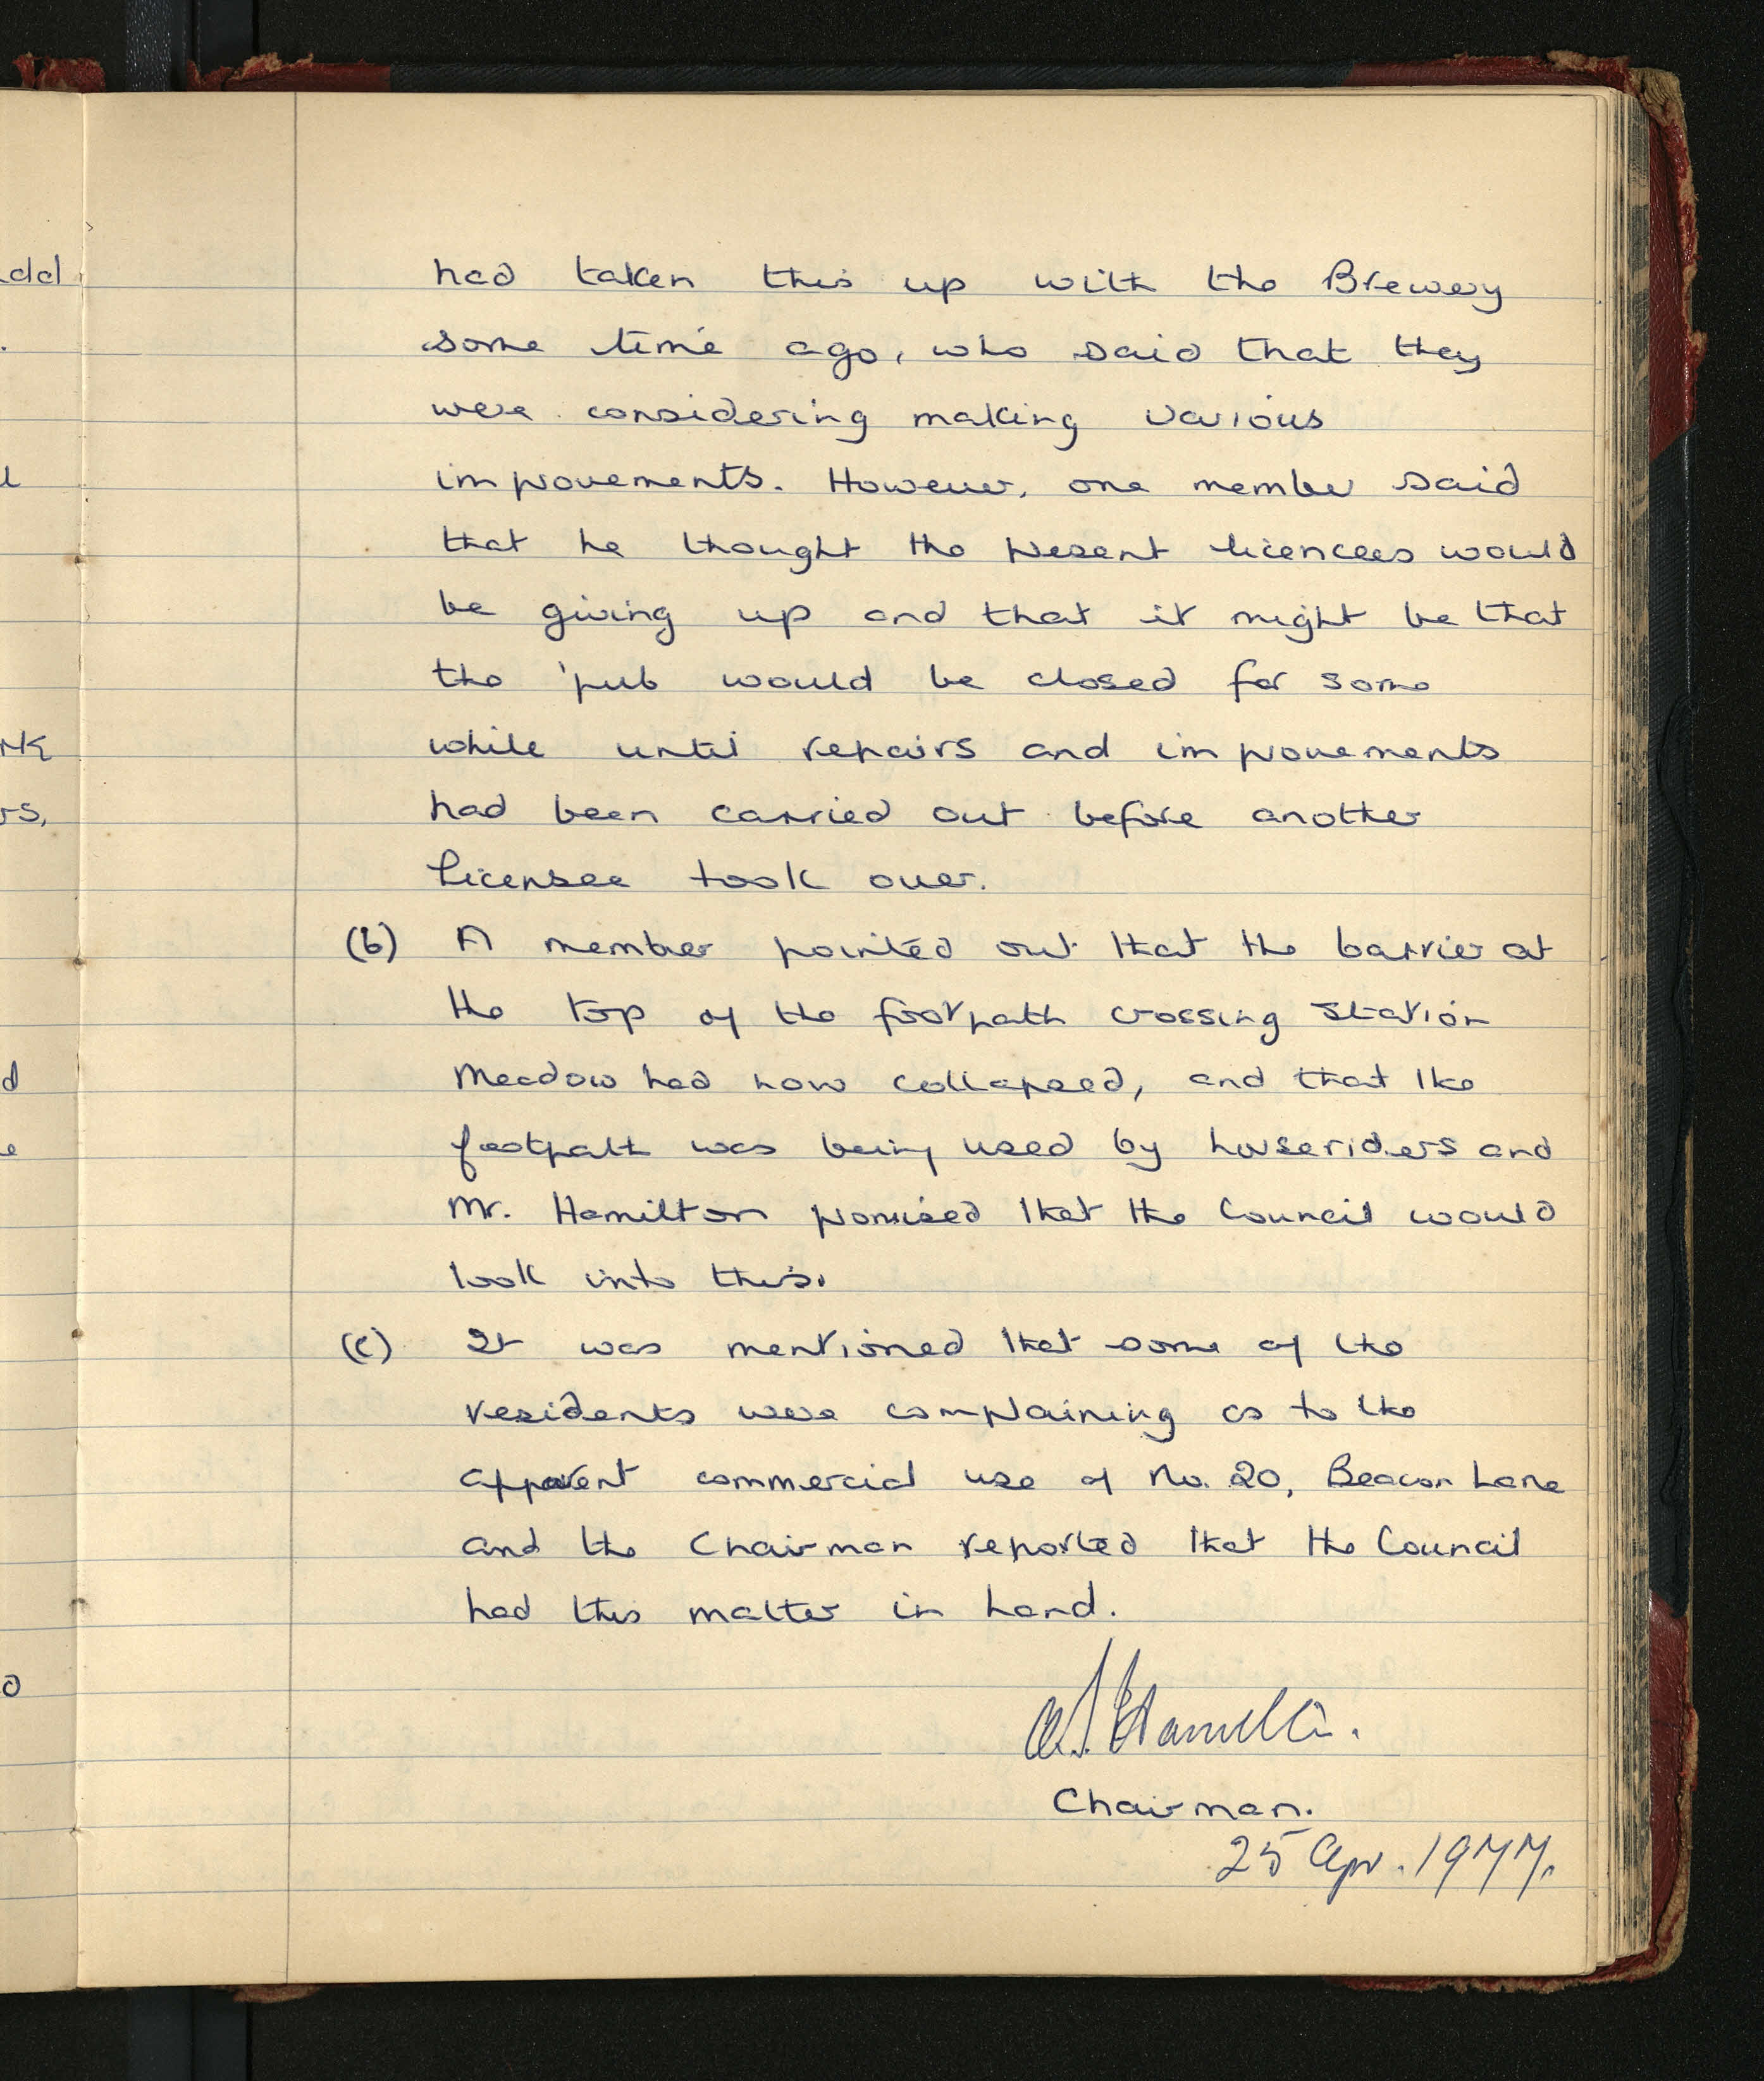 dd
.
l
rk
rs,
d
e
d
had taken this up with the Brewery
some time ago, who said that they
were considering making various
improvements. However, one member said
that he thought the present licencees would
be giving up and that it might be that
the 'pub would be closed for some
while until repairs and improvements
had been carried out before another
licensee took over.
(b) A member pointed out that the barrier at
the top of the footpath crossing Station
Meadow had now collapsed, and that the
footpath was being used by horseriders and
Mr. Hamilton promised that the Council would
look into this.
(c) It was mentioned that some of the
residents were complaining as to the
apparent commercial use of No. 20, Beacon Lane
and the Chairman reported that the Council
had this matter in hand.
Hamilton.
Chairman.
25 Apr. 1977.